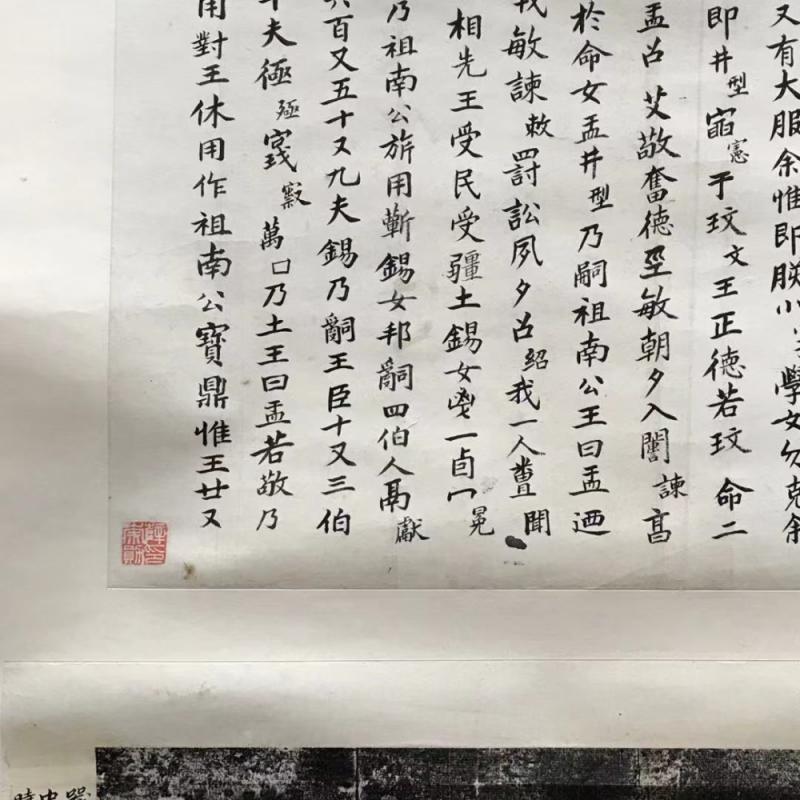 又有大服余惟即朕小學女勿克余
即井型㐭憲于玟文王正德若玟命二
盂召艾敬奮德巠敏朝夕入闌諫亯
於命女盂井型乃嗣祖南公王曰盂迺
敏諫敕罰訟夙夕召紹我一人䔲聞
相先王受民受疆土錫女鬯一卣冂冕
乃祖南公旂用蘄錫女邦嗣四伯人鬲獻
百又五十又九夫錫乃嗣王臣十又三伯
夫極殛窢竅萬口乃土王曰盂若敬乃
用對王休用作祖南公寶鼎惟王廿又